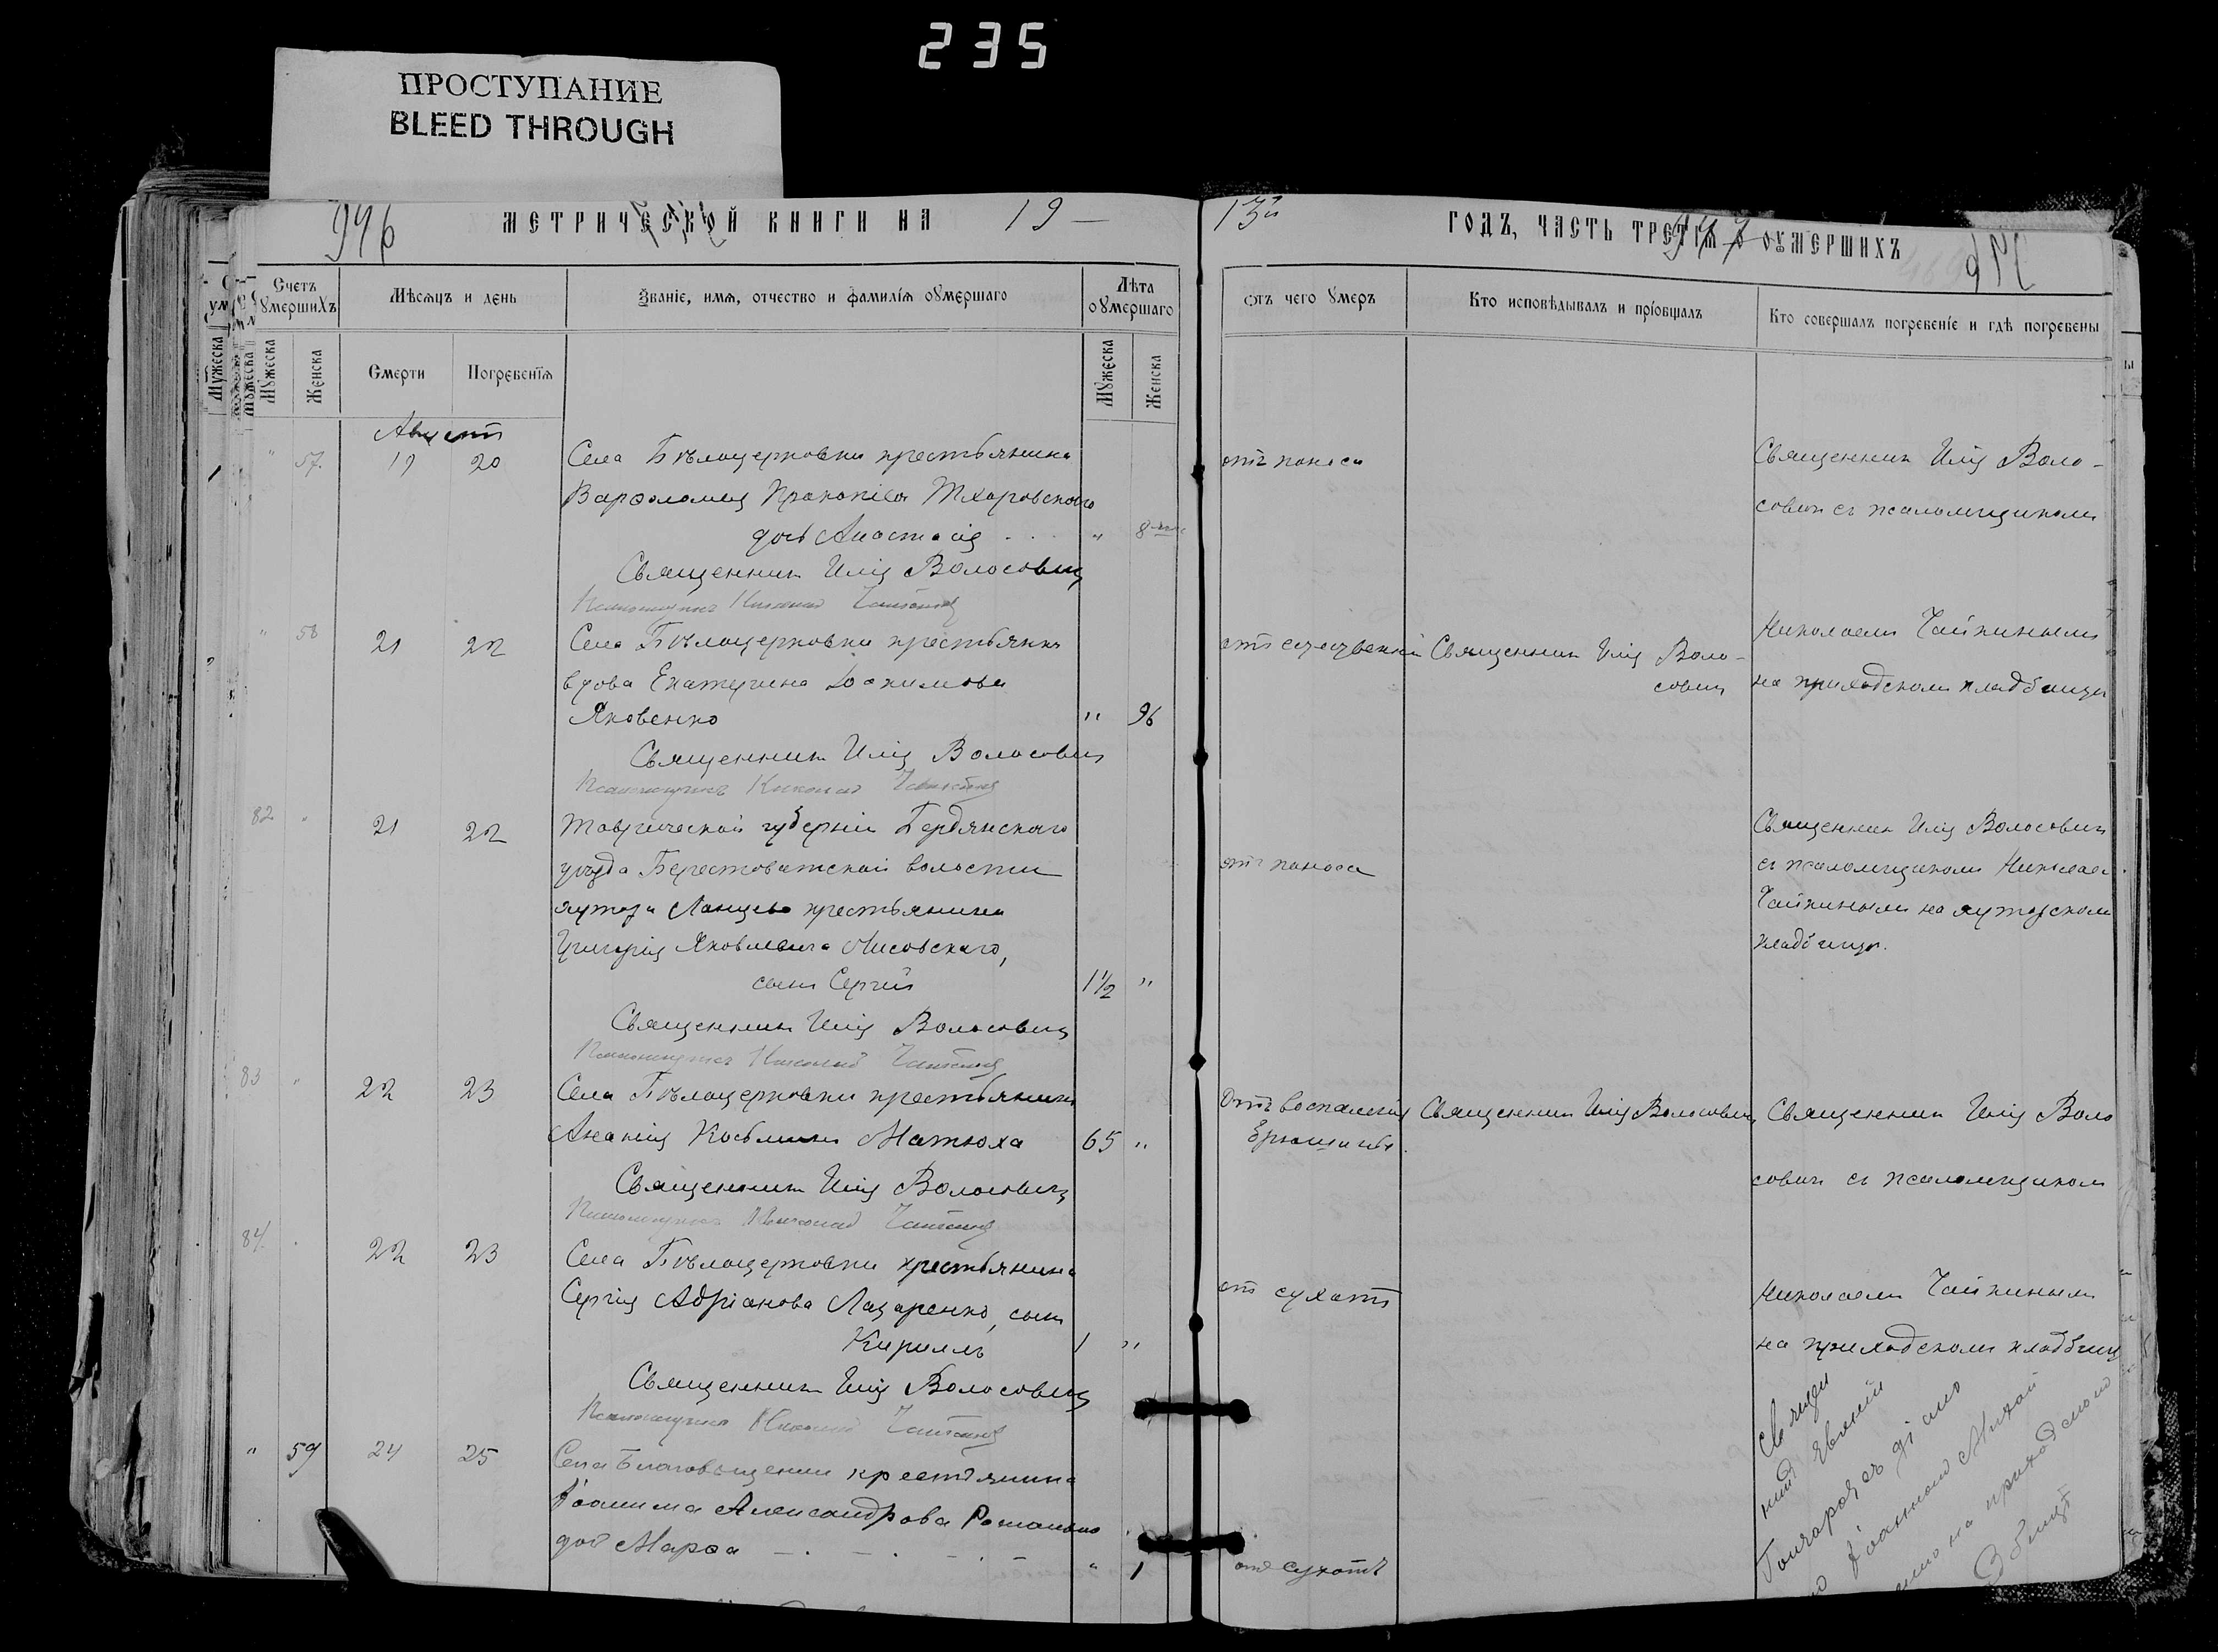 235
ПРОСТУПАНИЕ
BLEED THROUGH
946
МЕТРИЧЕСКОЙ КНИГИ НА 19 —
Счетъ умершихъ
Мѣсяцъ и день
Званіе, имя, отчество и фамилія умершаго
Лѣта умершаго
Мужеска
Женска
Смерти
Погребенія
Мужеска
Женска
Августъ
" 57. 19 20 Села Бѣлоцерковки крестьянина
Варѳоломея Прокопіева Тхоровскаго
дочь Анастасія . . . " 8
Священникъ Илія Волосовичъ
Псаломщикъ Николай Чайкинъ
" 58 21 22 Села Бѣлоцерковки крестьянка
вдова Екатерина
Яковенко " 96
Священникъ Илія Волосовичъ
Псаломщикъ Николай Чайкинъ
82 " 21 22 Таврической губерніи Бердянскаго
уѣзда Берестоватской волости
хутора крестьянина
Григорія Яковлевича Лисовскаго,
сынъ Сергій 1½ "
Священникъ Илія Волосовичъ
Псаломщикъ Николай Чайкинъ
83 " 22 23 Села Бѣлоцерковки крестьянинъ
Ананія Косьминъ Матюха 65 "
Священникъ Илія Волосовичъ
Псаломщикъ Николай Чайкинъ
84 " 22 23 Села Бѣлоцерковки крестьянина
Сергія Адріанова Лазаренко, сынъ
Кириллъ 1 "
Священникъ Илія Волосовичъ
Псаломщикъ Николай Чайкинъ
" 59 24 25 Села Благовѣщенки крестьянина
Іоакима Александрова Романенко
дочь Марѳа " 1
13й
ГОДЪ, ЧАСТЬ ТРЕТІЯ О УМЕРШИХЪ
947
Отъ чего умеръ
Кто исповѣдывалъ и пріобщалъ
Кто совершалъ погребеніе и гдѣ погребены
отъ поноса
Священникъ Илія Воло-
совичъ съ псаломщикомъ
Николаемъ Чайкинымъ
на приходскомъ кладбищѣ
Священникъ Илія Воло-
совичъ
отъ поноса
Священникъ Илія Волосовичъ
съ псаломщикомъ Николаемъ
Чайкинымъ на хуторскомъ
кладбищѣ.
Отъ воспаленія Священникъ Илія Волосовичъ Священникъ Илія Воло
брюшины.
совичъ съ псаломщикомъ
отъ сухотъ
Николаемъ Чайкинымъ
на приходскомъ кладбищѣ
Священ
никъ Евгеній
Гончаровъ съ діако
Іоанномъ Михай
на приходскомъ
отъ сухотъ